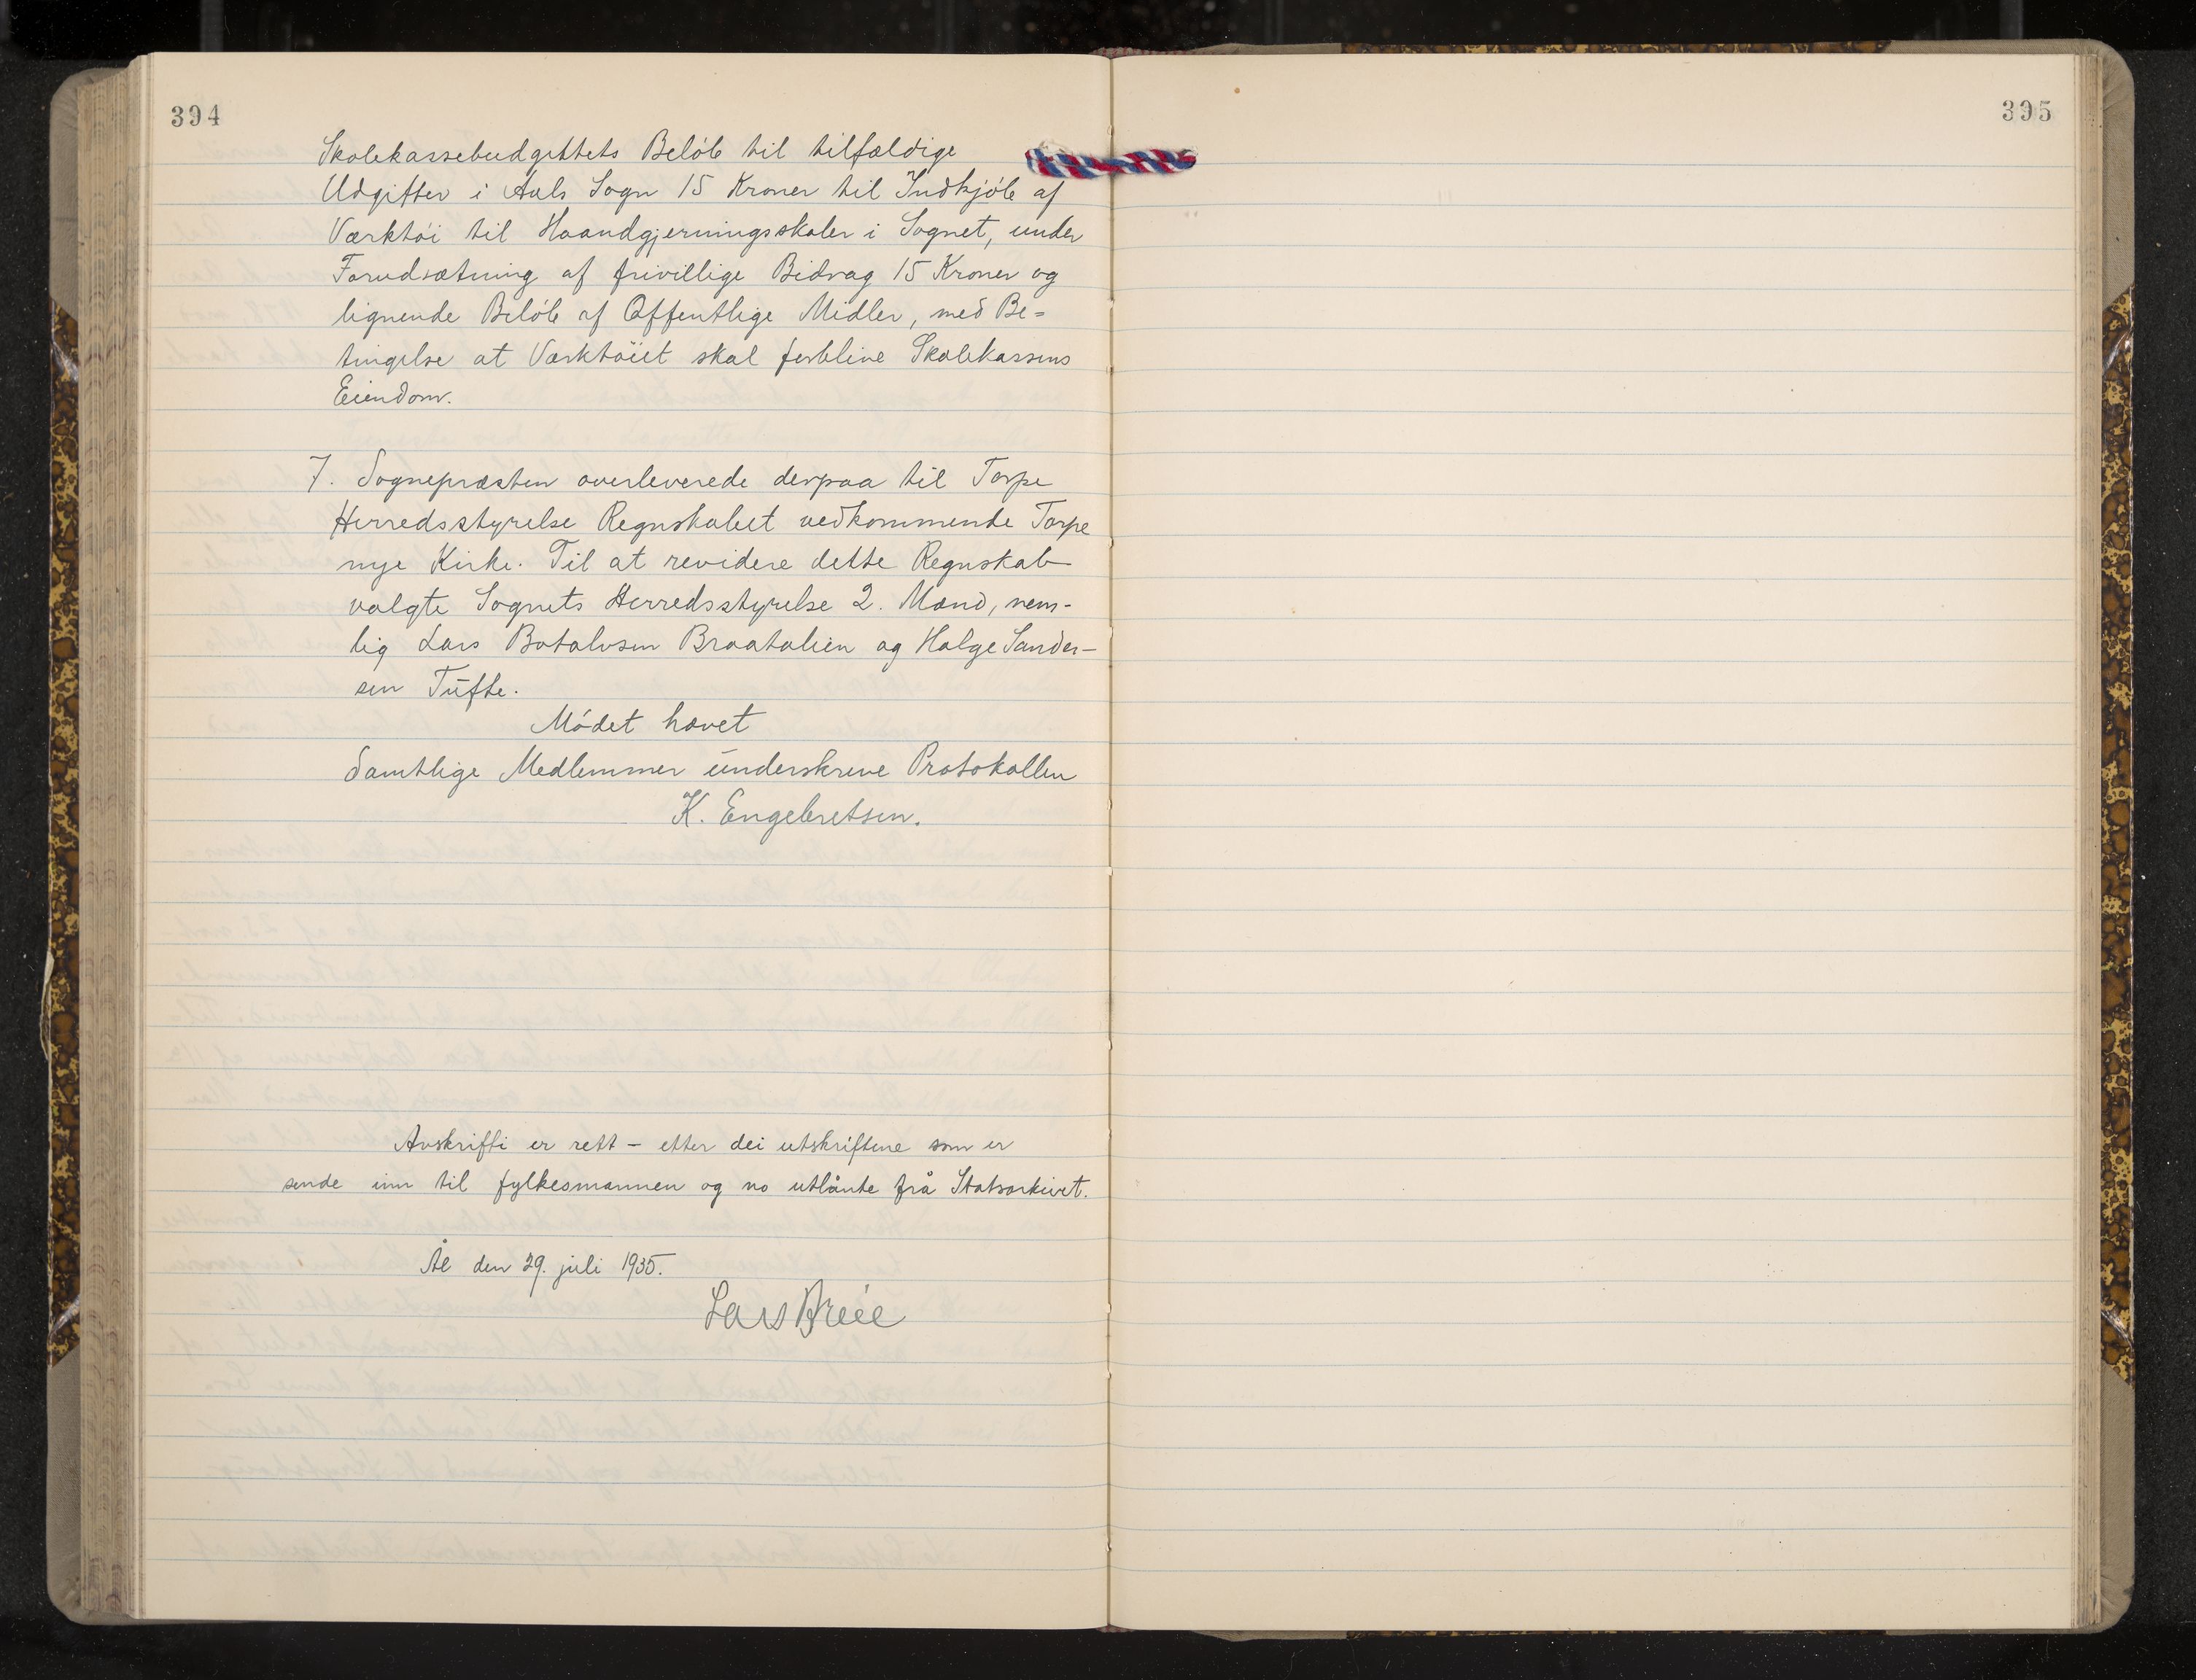 394
Skolekassebudgettets Beløb til tilfældige
Udgifter i Aals Sogn 15 Kroner til Indkjøb af
Værktøi til Haandgjerningsskoler i Sognet, under
Forudsætning af frivillige Bidrag 15 Kroner og
lignende Beløb af Offentlige Midler, med Be=
tingelse at Værktøiet skal forblive Skolekassens
Eiendom.
7. Sognepræsten overleverede derpaa til Torpe
Herredsstyrelse Regnskabet vedkommende Torpe
nye Kirke. Til at revidere dette Regnskab
valgte Sognets Herredsstyrelse 2. Mænd, nem-
lig Lars Botolvsen Braatalien og Holge Sander-
sen Tufte.
Mødet hævet
Samtlige Medlemmer underskreve Protokollen
K. Engebretsen.
Avskrifti er rett - etter dei utskriftine som er
sende inn til fylkesmannen og no utlånte frå Statsarkivet.
Ål den 29. juli 1935.
Lars Breie
395